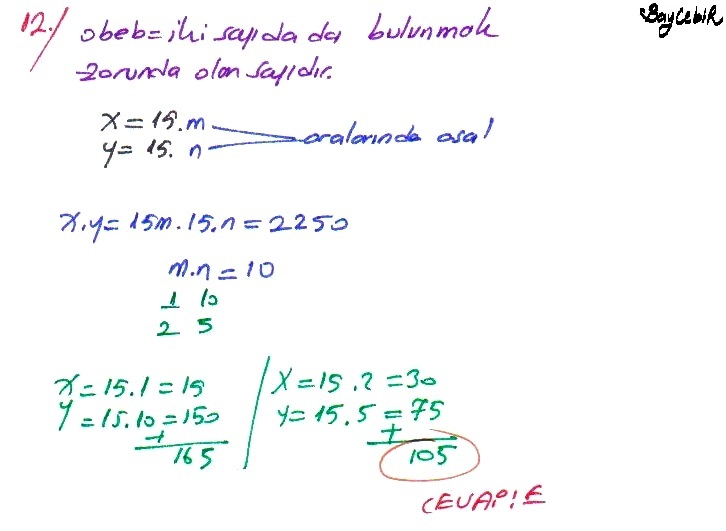 BayCebiR
12.) obeb = iki sayıda da bulunmak
zorunda olan sayıdır.
x = 15.m
y = 15. n
aralarında asal
x.y = 15m.15.n = 2250
m.n = 10
1 10
2 5
x = 15.1 = 15
y = 15.10 = 150
+
165
x = 15.2 = 30
y = 15.5 = 75
+
105
CEVAP: E